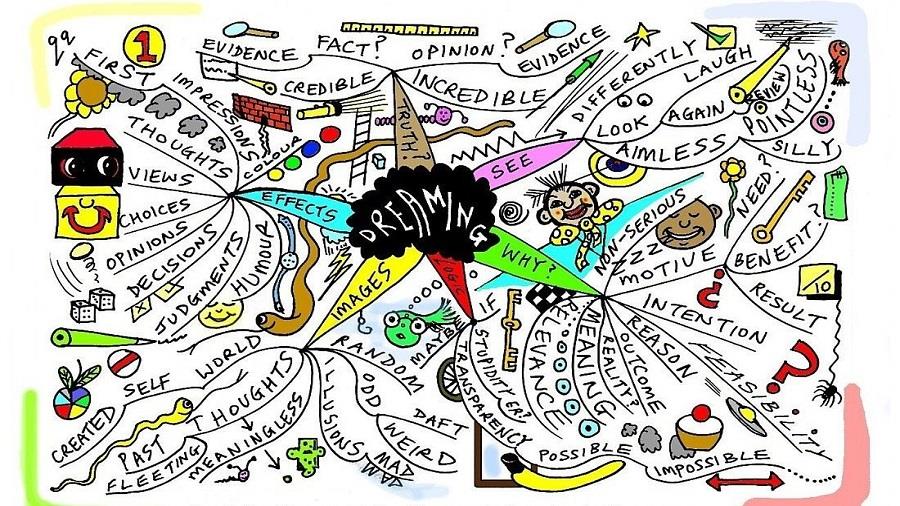 DREAMING
TRUTH?
EVIDENCE
FACT?
OPINION?
EVIDENCE
CREDIBLE
INCREDIBLE
SEE
DIFFERENTLY
LAUGH
LOOK
AGAIN
REVIEW
POINTLESS
AIMLESS
SILLY
WHY?
NON-SERIOUS
ZZZ
MOTIVE
NEED?
BENEFIT?
INTENTION
RESULT
10
REASON
FEASIBILITY
OUTCOME
REALITY?
MEANING
RELEVANCE
POSSIBLE
IMPOSSIBLE
LOGIC
IF
MAYBE
STUPIDITY?
TRANSPARENCY
IMAGES
RANDOM
ODD
DAFT
WEIRD
MAD
ILLUSIONS
THOUGHTS
MEANINGLESS
PAST
FLEETING
WORLD
SELF
CREATED
EFFECTS
1
FIRST
IMPRESSIONS
COLOUR
THOUGHTS
VIEWS
CHOICES
OPINIONS
DECISIONS
JUDGMENTS
HUMOUR